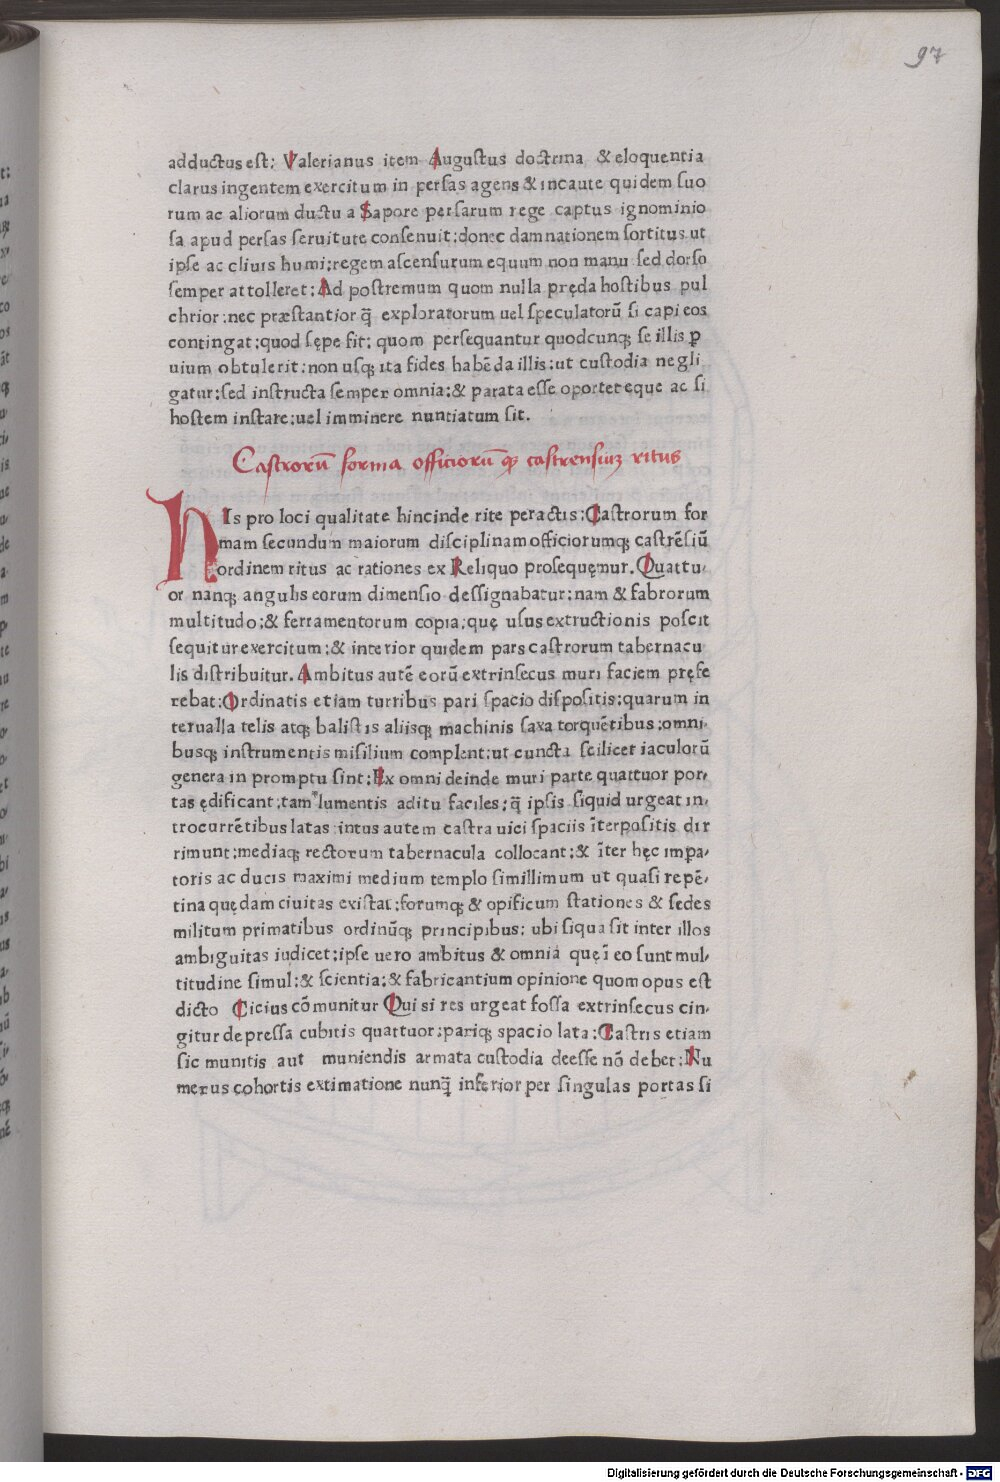 97
adductus est: Valerianus item Augustus doctrina & eloquentia
clarus ingentem exercitum in persas agens & incaute quidem suo
rum ac aliorum ductu a Sapore persarum rege captus ignominio
sa apud persas seruitute consenuit: donec damnationem sortitus ut
ipse ac cliuis humi: regem ascensurum equum non manu sed dorso
semper attolleret: Ad postremum quom nulla pręda hostibus pul
chrior: nec præstantior q̃ exploratorum uel speculatorũ si capi eos
contingat: quod sępe fit: quom persequantur quodcunq; se illis ꝑ
uium obtulerit: non usq; ita fides habẽda illis: ut custodia negli
gatur: sed instructa semper omnia: & parata esse oportet eque ac si
hostem instare: uel imminere nuntiatum sit.
Castrorũ forma officiorũ q; castrensiuꝫ ritus
HIs pro loci qualitate hincinde rite peractis: Castrorum for
mam secundum maiorum disciplinam officiorumq; castrẽsiũ
ordinem ritus ac rationes ex Reliquo prosequęmur. Quattu-
or nanq; angulis eorum dimensio dessignabatur: nam & fabrorum
multitudo: & ferramentorum copia: quę usus extructionis poscit
sequitur exercitum: & interior quidem pars castrorum tabernacu
lis distribuitur. Ambitus autẽ eorũ extrinsecus muri faciem pręfe
rebat: Ordinatis etiam turribus pari spacio dispositis: quarum in
terualla telis atq; balistis aliisq; machinis saxa torquẽtibus: omni-
busq; instrumentis misilium complent: ut cuncta scilicet iaculorũ
genera in promptu sint: Ex omni deinde muri parte quattuor por-
tas ędificant: tam lumentis aditu faciles: q̃ ipsis siquid urgeat in-
trocurrẽtibus latas intus autem castra uici spaciis ĩterpositis dir
rimunt: mediaq; rectorum tabernacula collocant: & ĩter hęc impa-
toris ac ducis maximi medium templo simillimum ut quasi repẽ-
tina quędam ciuitas existat: forumq; & opificum stationes & sedes
militum primatibus ordinũq; principibus: ubi siqua sit inter illos
ambiguitas iudicet: ipse uero ambitus & omnia quę ĩ eo sunt mul-
titudine simul: & scientia: & fabricantium opinione quom opus est
dicto Cicius cõmunitur Qui si res urgeat fossa extrinsecus cin-
gitur depressa cubitis quattuor: pariq; spacio lata: Castris etiam
sic munitis aut muniendis armata custodia deesse nõ debet: Nu
merus cohortis extimatione nunq̃ inferior per singulas portas si
Digitalisierung gefördert durch die Deutsche Forschungsgemeinschaft - DFG